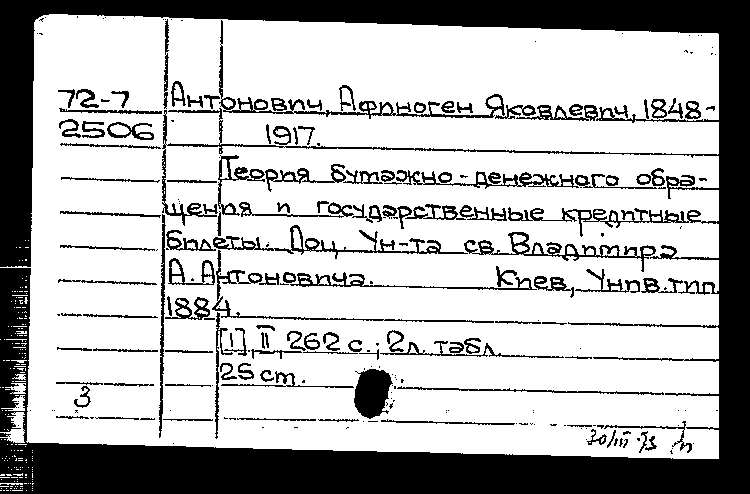 72-7 Антонович, Афиноген Яковлевич, 1848-
2506 1917.
Теория бумажно-денежного обра-
щения и государственные кредитные
билеты. Доц. Ун-та св. Владимира
А. Антоновича. Киев, Унив. тип
1884.
[I], II, 262 с.; 2л. табл.
25 ст.
3
30/III-73